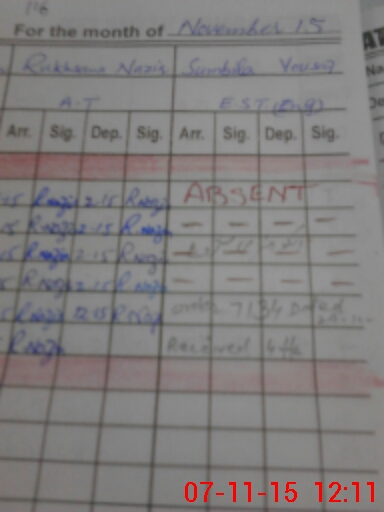 116
For the month of November 15
Rukhsana Nazir Sumbila Yousaf
A.T E.S.T. (Eng)
Arr. Sig. Dep. Sig. Arr. Sig. Dep. Sig.
ABSENT
15 RNazir 2-15 RNazir
15 RNazir 2-15 RNazir — — — —
15 RNazir 2-15 RNazir — — — —
15 RNazir 2-15 RNazir — — — —
RNazir 12-15 RNazir order 7134 Dated
RNazir Received
07-11-15 12:11